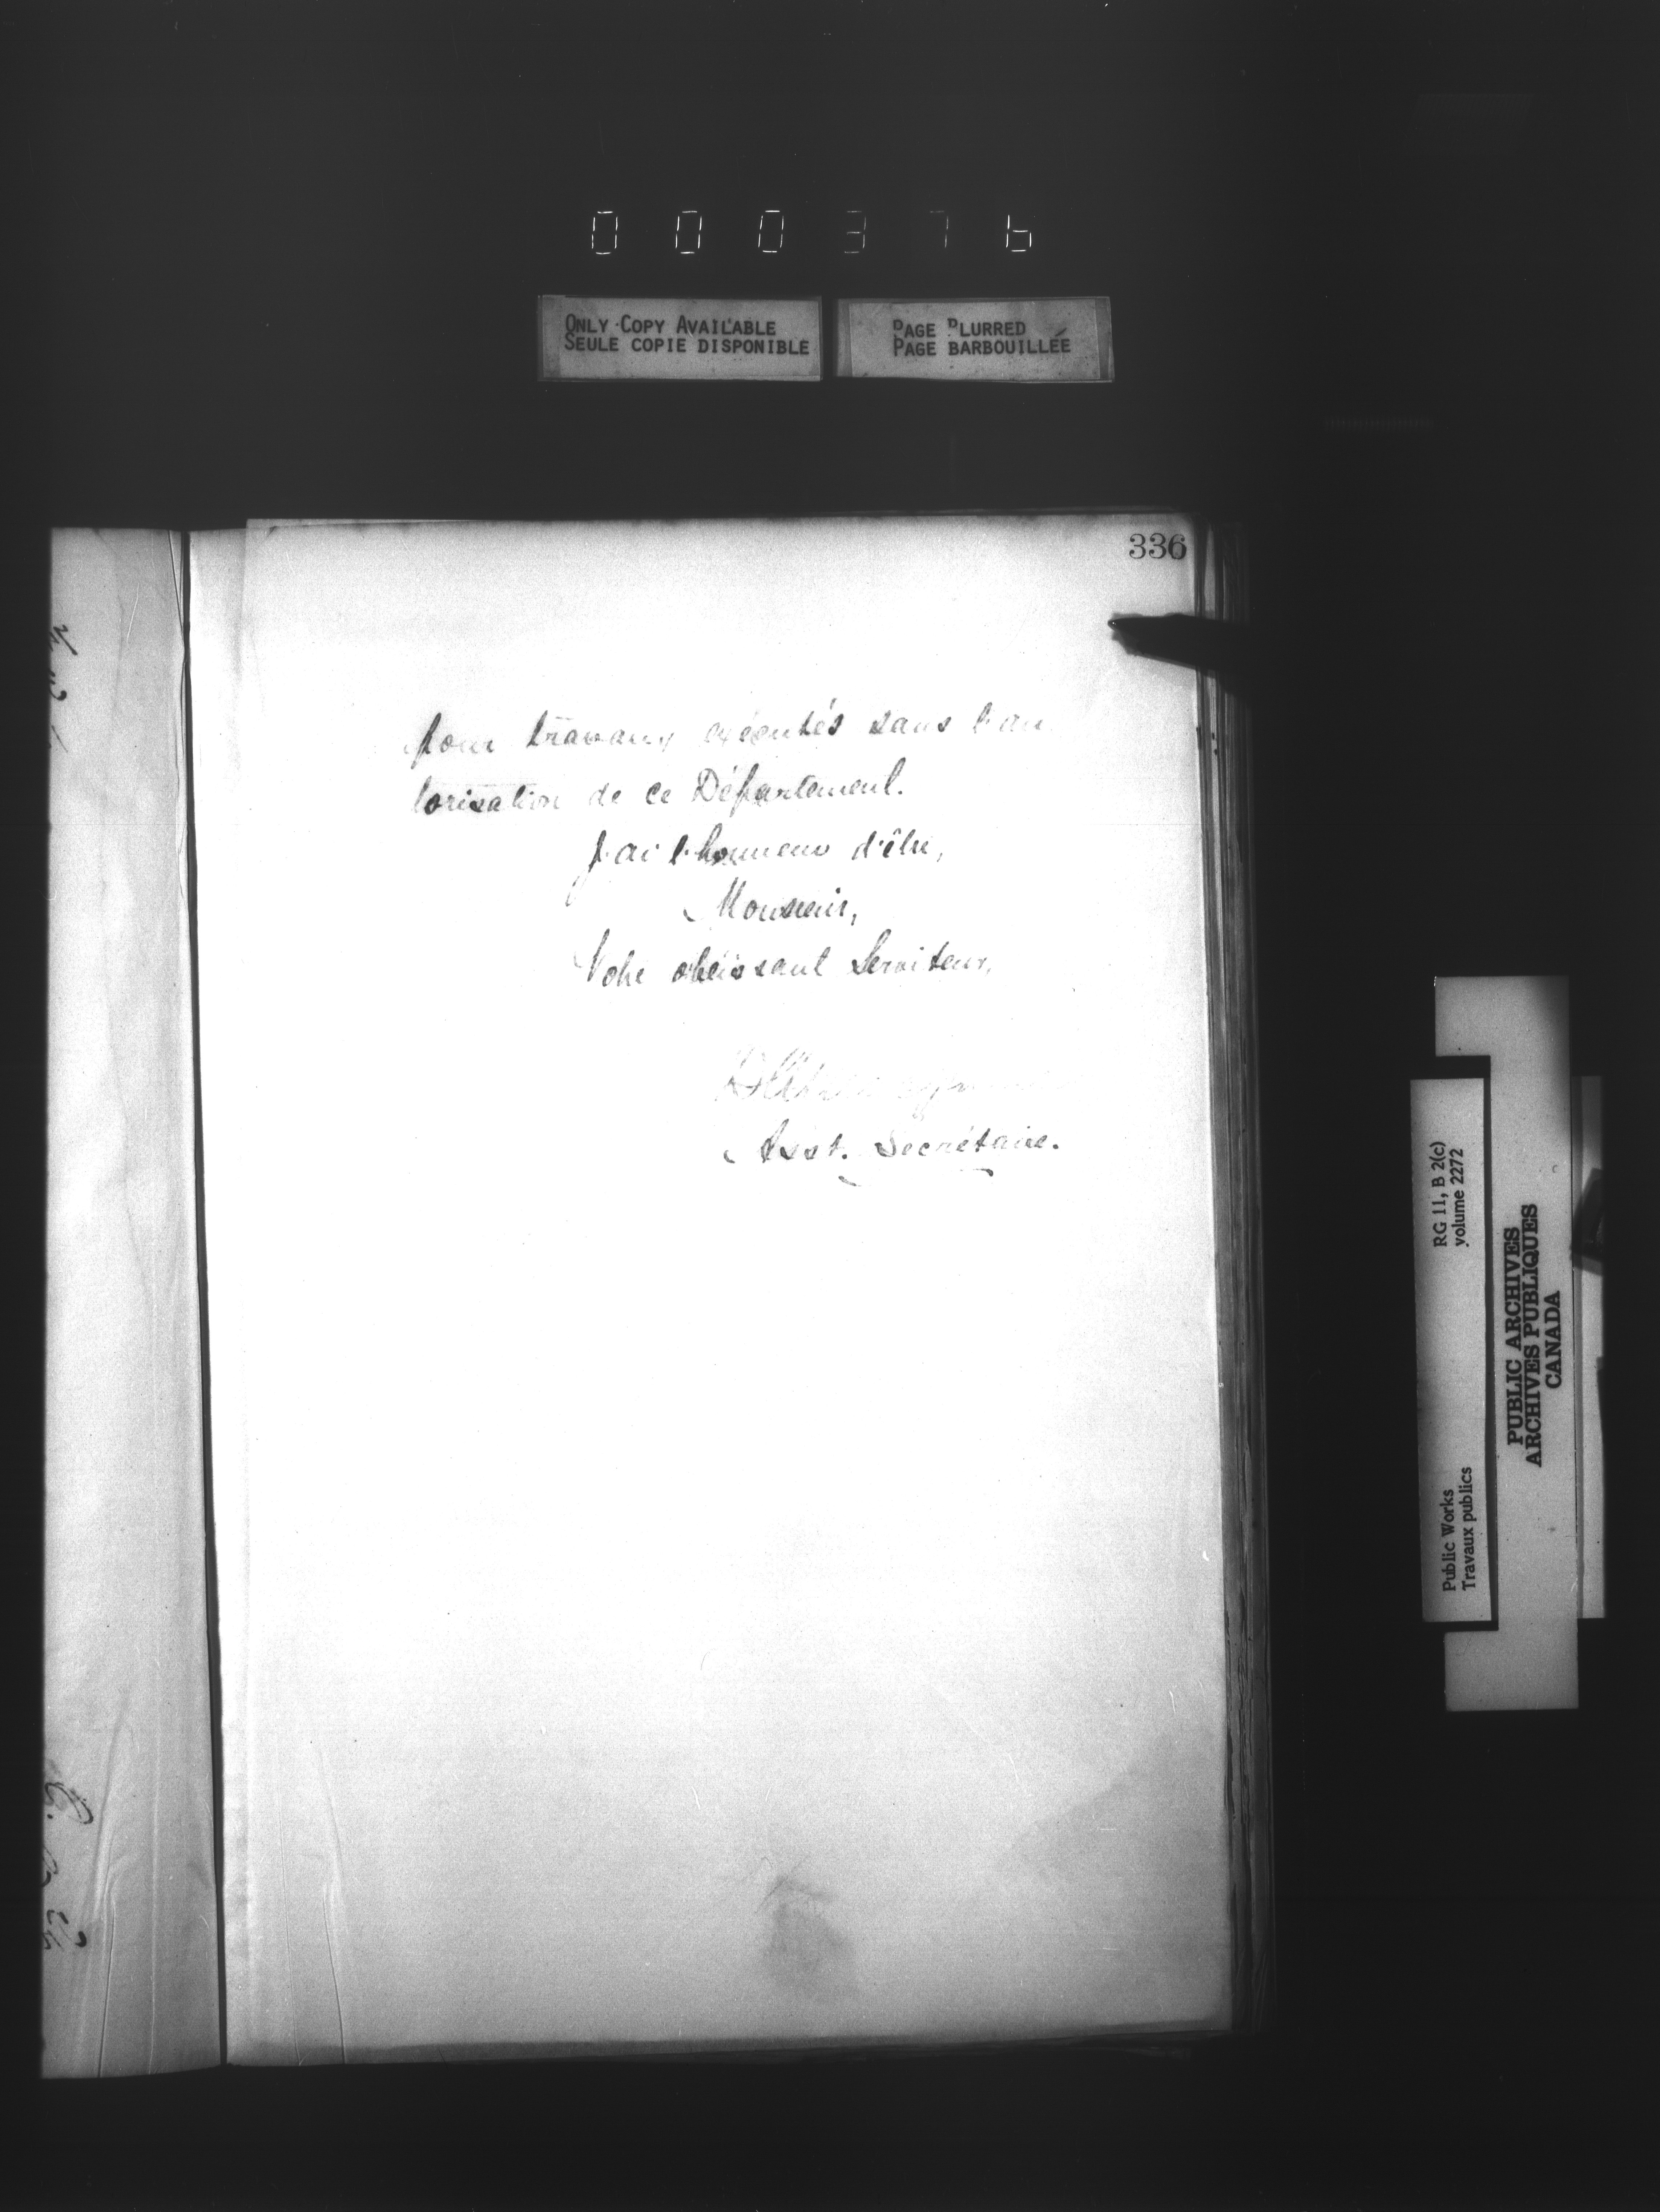 000376
ONLY COPY AVAILABLE
SEULE COPIE DISPONIBLE
PAGE BLURRED
PAGE BARBOUILLÉE
336
pour travaux exécutés sans l'au
torisation de ce Département.
J'ai l'honneur d'être,
Monsieur,
Votre obéissant Serviteur,
Asst. Secrétaire.
RG 11, B 2(c)
volume 2272
Public Works
Travaux publics
PUBLIC ARCHIVES
ARCHIVES PUBLIQUES
CANADA